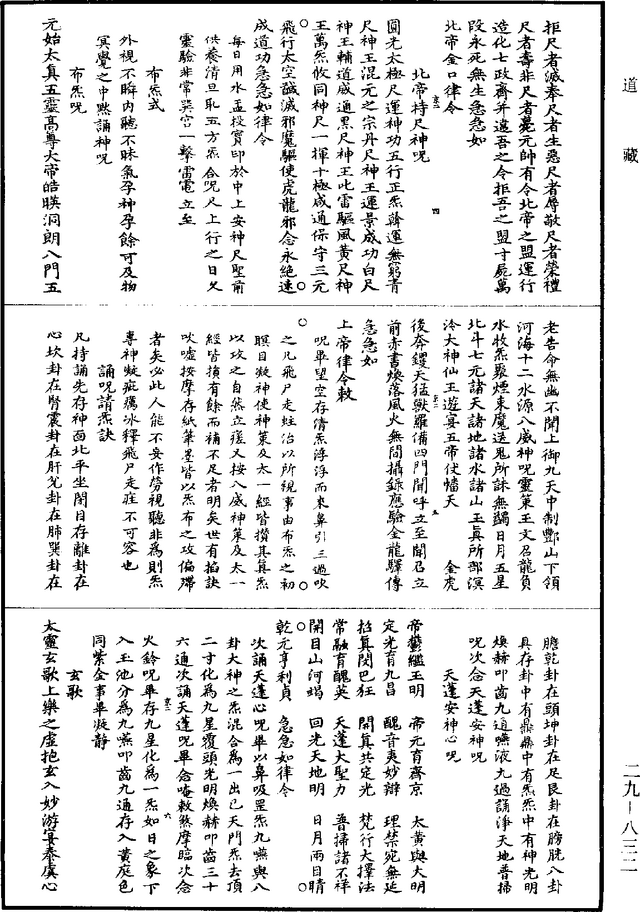 道藏
拒尺者滅奉尺者生惡尺者辱敬尺者榮禮
尺者壽非尺者薨元帥有令北帝之盟運行
造化七政齊并違吾之令拒吾之盟寸屍萬
段永死無生急急如
北帝金口律令
北帝持尺神呪
圓光太極尺運神功五行正炁斡運無窮青
尺神王混元之宗丹尺神王運景成功白尺
神王輔道感通黑尺神王此雷驅風黃尺神
王萬炁攸同神尺一揮十極咸通保守三元
飛行太空誠滅邪魔驅使虎龍邪念永絕速
成道功急急如律令
每日用水盂投寶印於中上安神尺聖前
供養清旦恥五方炁合呪尺上行之日久
靈驗非常冥宮一擊雷電立至
布炁式
外視不瞬內聽不昧氣孕神孕餘可及物
冥覺之中默誦神呪
布炁呪
元始太真五靈高尊大帝皓暎洞朗八門五
老告命無幽不聞上御九天中制酆山下領
河海十二水源八威神呪靈策王文召龍負
水牧炁聚煙束魔送鬼所誅無蠲日月五星
北斗七元諸天諸地諸水諸山王真所部溟
泠大神仙王遊宴五帝伏幡天　金虎
後奔鑊天猛獸羅備四門開呼立至聞召立
前赤書煥落風火無間攝錄應驗金龍驛傳
急急如
上帝律令敕
呪畢望空存清炁浮浮而來鼻引三過吹
之凡飛尸走蛀治以所視事由布炁之初
瞑目凝神使神葉及太一經皆攢其真炁
以攻之自然立瘥又按八威神葉及太一
經皆損有餘而補不足者明矣世有掐訣
吹噓按摩存紙筆墨皆以炁布之攻偏滯
者矣必此人能不妄作勞視聽非為則炁
專神凝疵癘冰釋飛尸走疰不可容也
誦呪請炁訣
凡持誦先存神面北平坐閉目存離卦在
心坎卦在腎震卦在肝兌卦在肺巽卦在
膽乾卦在頭坤卦在足艮卦在膀胱八卦
具存卦中有鼎鼎中有炁炁中有神光明
煥赫叩齒九通嚥液九過誦淨天地普掃
呪次念天蓬安神呪
天蓬安神心呪
帝鬱繼王明　帝元育齋京　太黃與大明
定光育九昌　醜音夷妙辯　理禁宛無延
招真閔巴狂　開真共定光　梵行大擇法
常融育醜英　天蓬大聖力　普掃諸不祥
開目山河竭　回光天地明　日月兩目睛
乾元亨利貞　急急如律令
次誦天蓬心呪畢以鼻吸罡炁九嚥與八
卦大神之炁混合為一出巳天門炁去頂
二寸化為九星覆頭光明煥赫叩齒三十
六通次誦天蓬呪畢念唵敕煞摩臨次念
火鈴呪畢存九星化為一炁如日之象下
入玉池分為九嚥叩齒九通存入黃庭色
同紫金事畢凝靜
玄歌
太靈玄歌上樂之虛抱玄入妙游宴泰虞心
二九－八三二